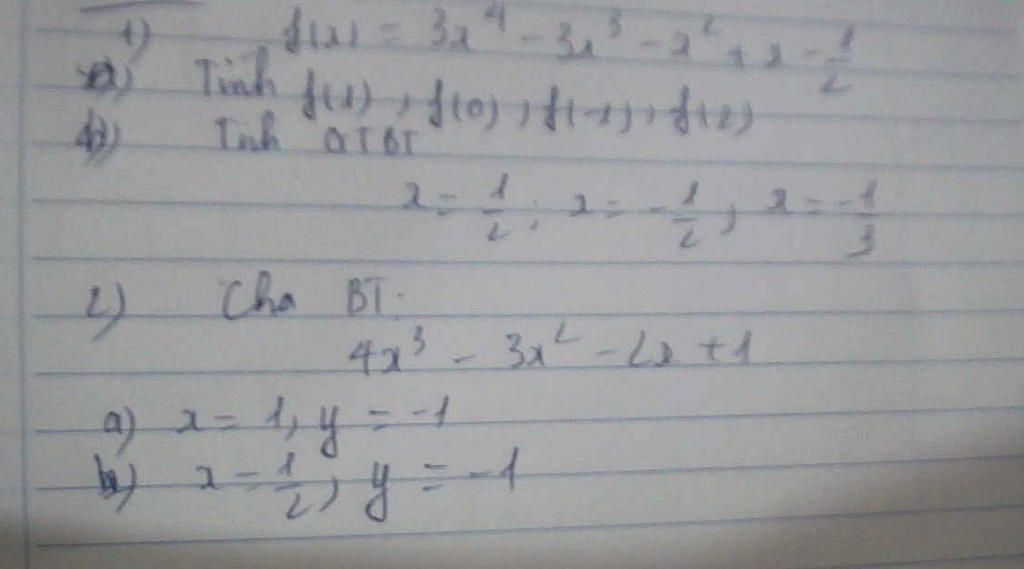 1) f(x) = 3x⁴ - 3x³ - x² + x - 1/2
a) Tính f(1), f(0), f(-1), f(2)
b) Tính GTBT
x = 1/2; x = -1/2; x = -1/3
2) Cho BT:
4x³ - 3x² - 2x + 1
a) x = 1, y = -1
b) x = 1/2, y = -1